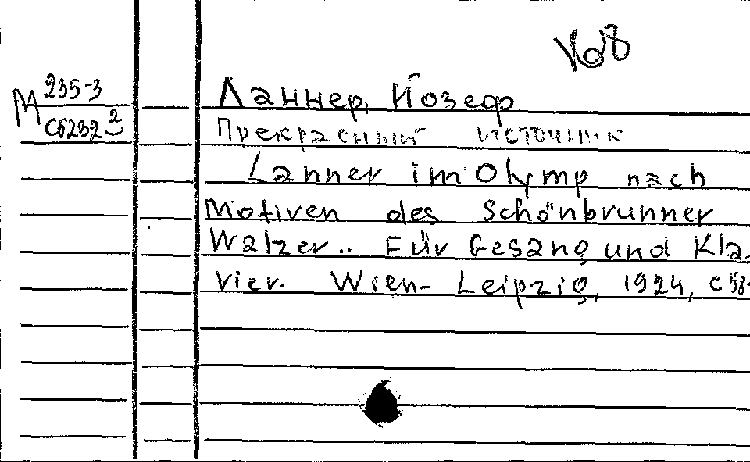 V68
М 235-3
Сб232 2
Ланнер, Йозеф
Прекрасный источник
Lanner im Olymp nach
Motiven des Schönbrunner
Walzer.. Für Gesang und Kla-
vier. Wien-Leipzig, 1924,